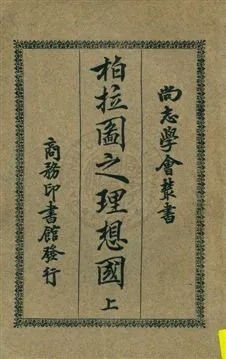 尚志學會叢書
柏拉圖之理想國 上
商務印書館發行